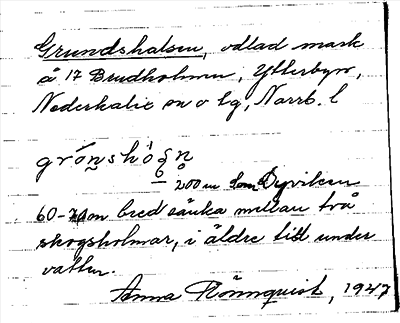 Grundshalsen, odlad mark
å 17 Brudholmen, Ytterbyn,
Nederkalix sn o tg, Norrb. l
grón̰shò̰gn̥
200 m lång Dyviken
60-70 m bred sänka mellan två
skogsholmar, i äldre tid under
vatten.
Anna Rönnquist, 1947